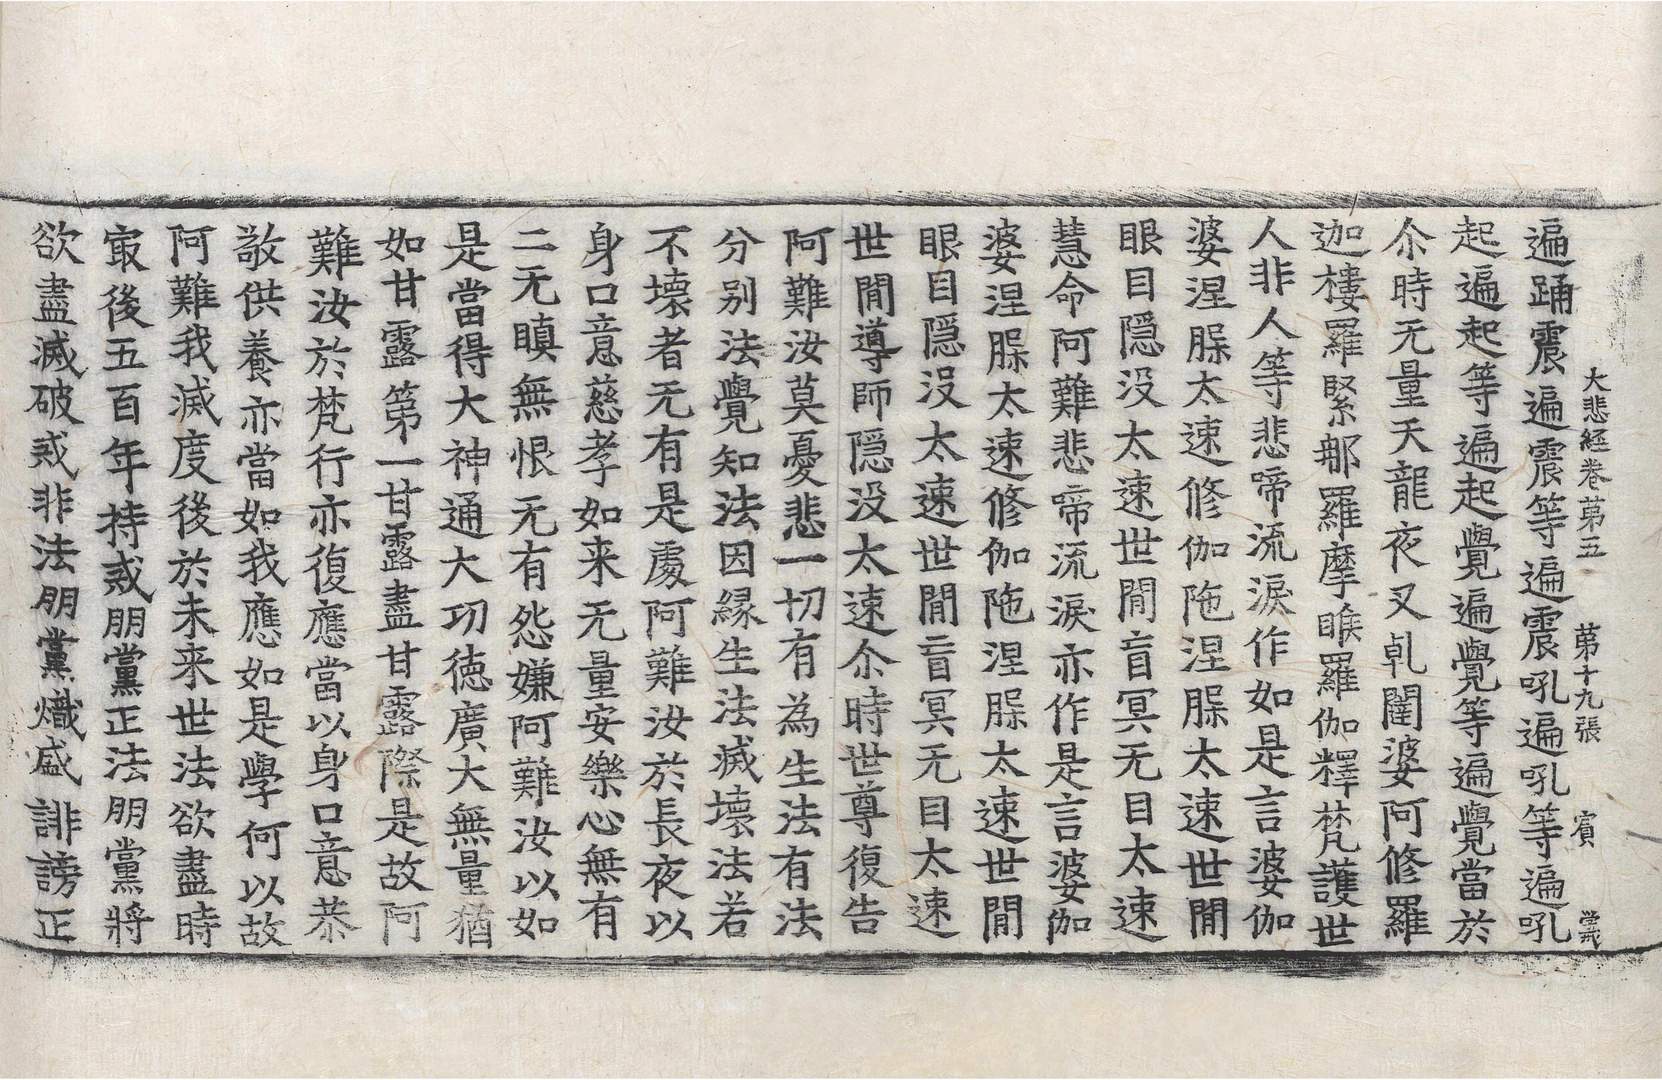 大悲經卷第五 第十九張 賓
遍踊震遍震等遍震吼遍吼等遍吼
起遍起等遍起覺遍覺等遍覺當於
尒時无量天龍夜叉乹闥婆阿修羅
迦樓羅緊那羅摩睺羅伽釋梵護世
人非人等悲啼流淚作如是言婆伽
婆涅脲太速修伽陁涅脲太速世閒
眼目隠没太速世閒盲冥无目太速
慧命阿難悲啼流淚亦作是言婆伽
婆涅脲太速修伽陁涅脲太速世閒
眼目隠没太速世閒盲冥无目太速
世閒導師隠没太速尒時世尊復告
阿難汝莫憂悲一切有為生法有法
分别法覺知法因縁生法滅壊法若
不壊者无有是處阿難汝於長夜以
身口意慈孝如来无量安樂心無有
二无瞋無恨无有怨嫌阿難汝以如
是當得大神通大功徳廣大無量猶
如甘露第一甘露盡甘露際是故阿
難汝於梵行亦復應當以身口意恭
敬供養亦當如我應如是學何以故
阿難我滅度後於未来世法欲盡時
㝡後五百年持戒朋黨正法朋黨將
欲盡滅破戒非法朋黨熾盛誹謗正